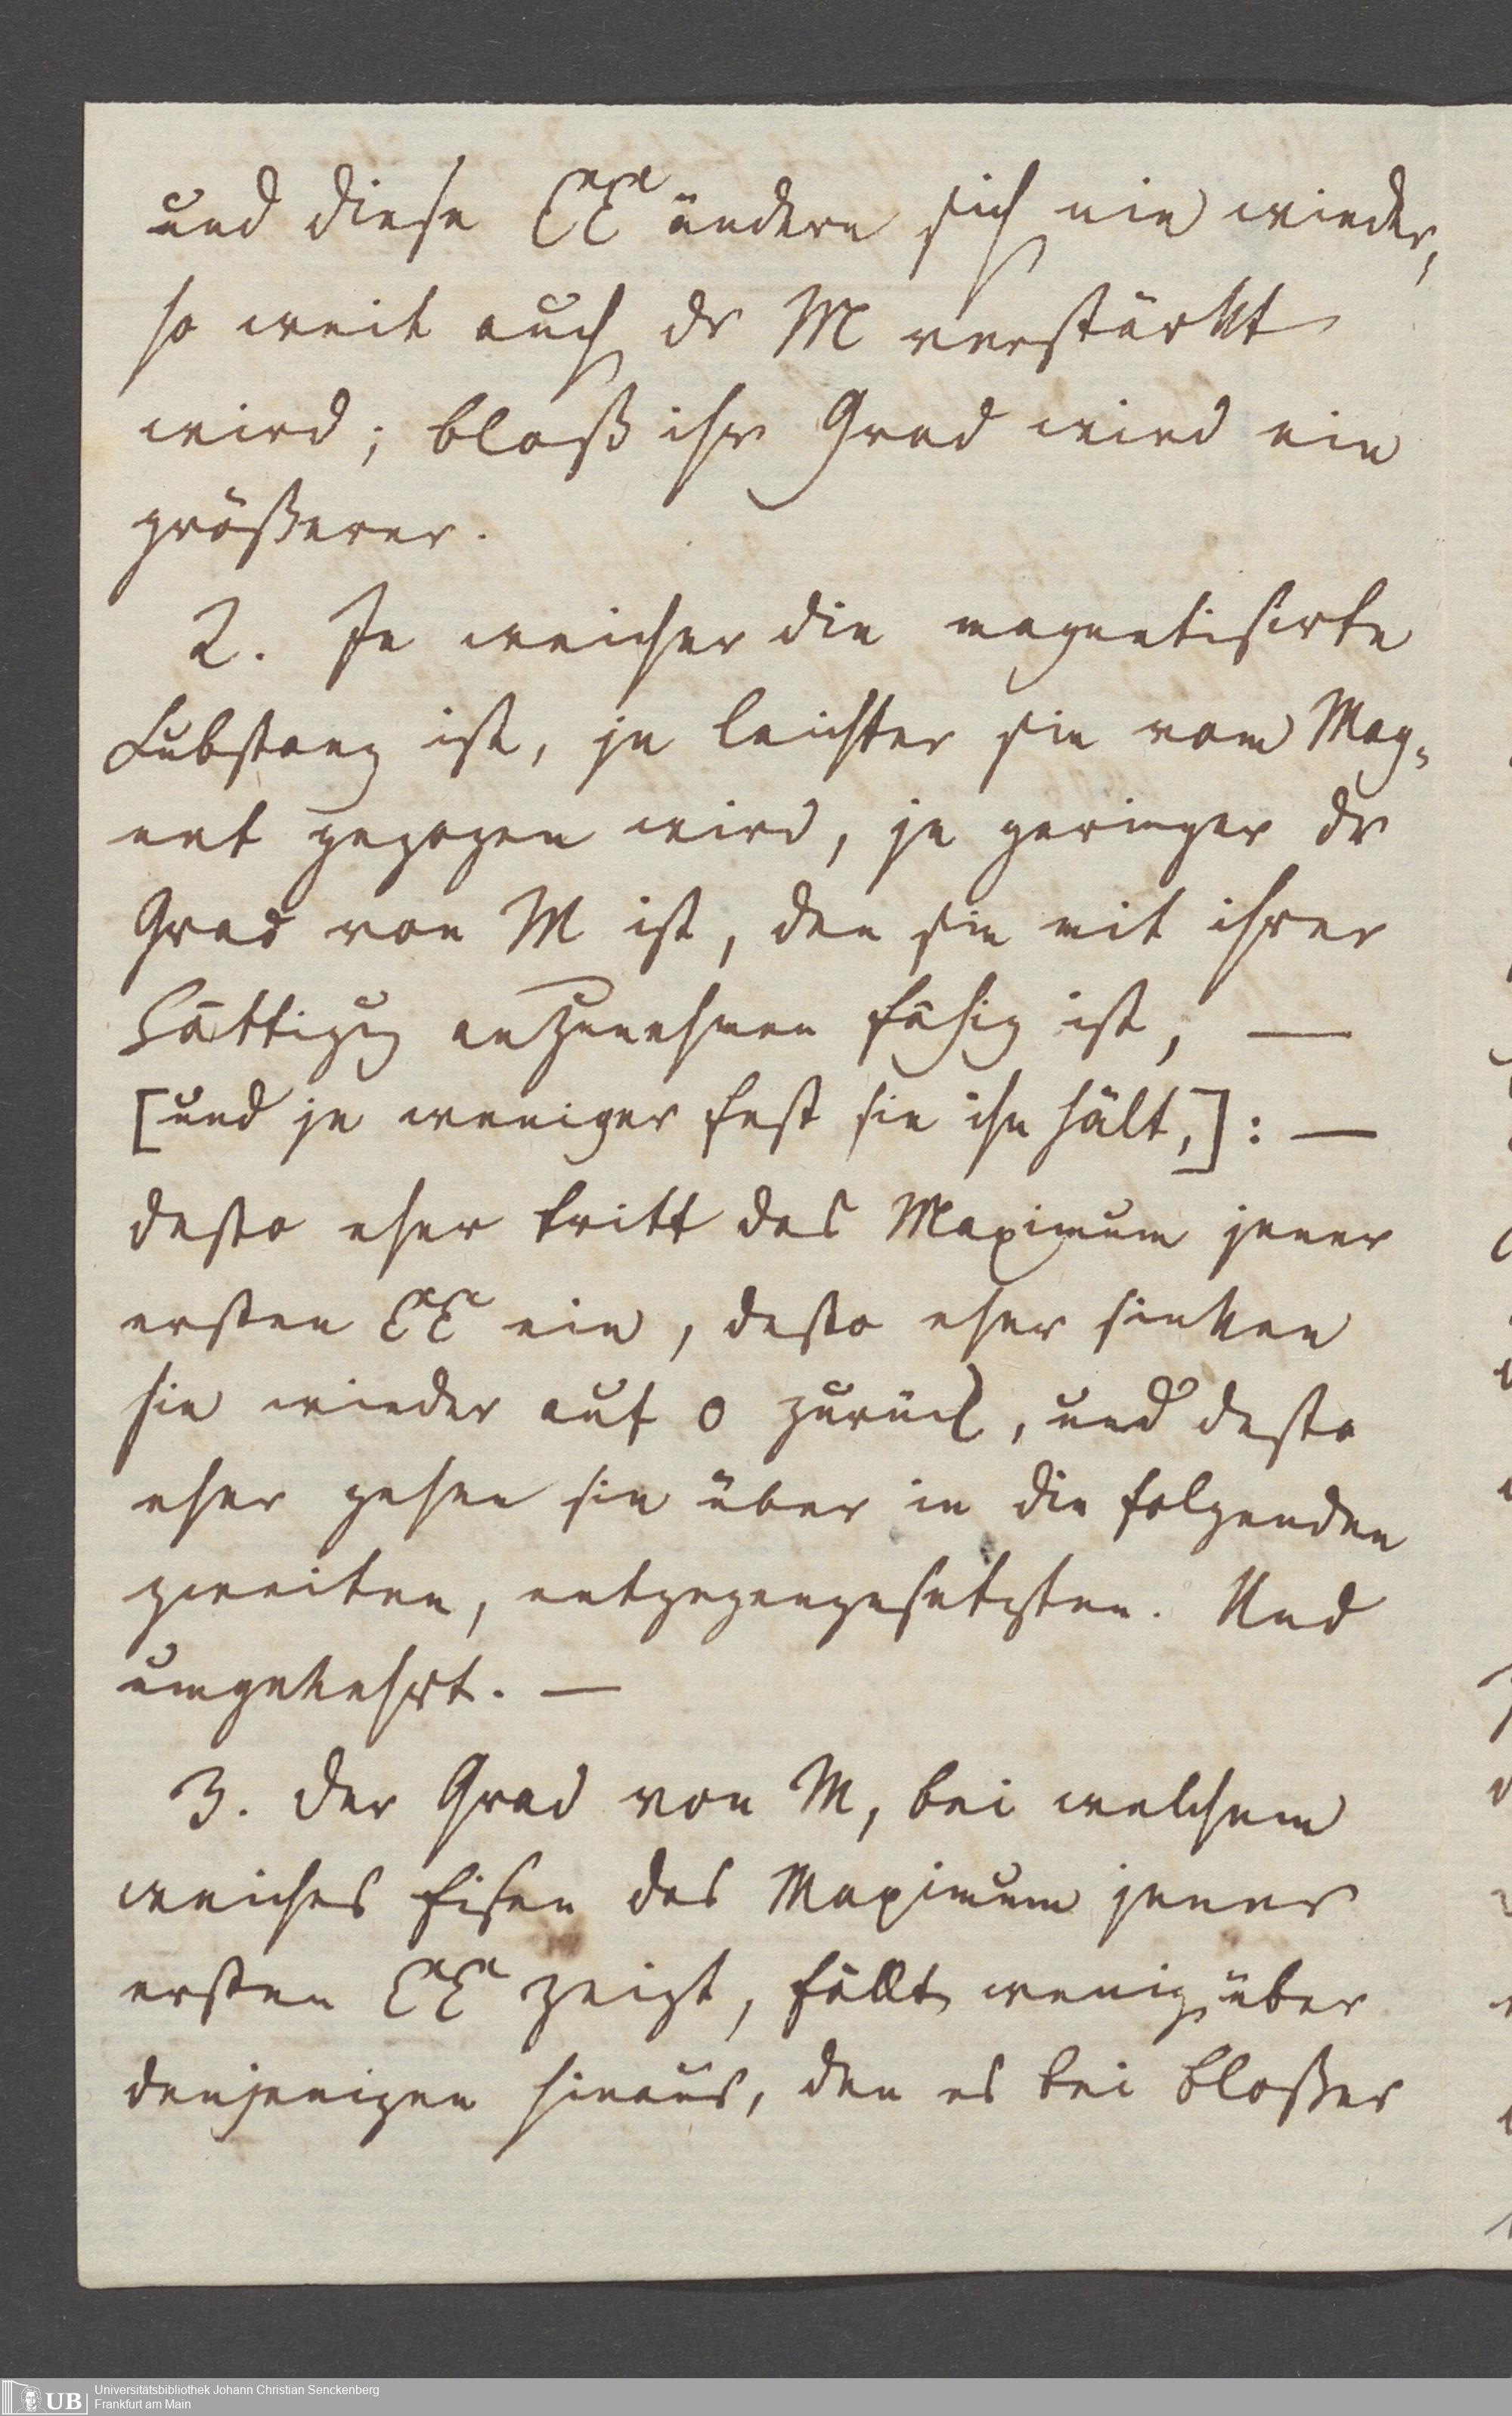 und diese EE ändern sich nie wieder,
so weit auch dr M verstärkt
wird; bloß ihr Grad wird ein
größerer.
2. Je weicher die magnetisirte
Substanz ist, je leichter sie vom Mag-
net gezogen wird, je geringer dr
Grad von M ist, den sie mit ihrer
Sättigug anzunehmen fähig ist, —
[und je weniger fest sie ihn hält,]: —
desto eher tritt das Maximum jener
ersten EE ein, desto eher sinken
sie wieder auf 0 zurück, und desto
eher gehen sie über in die folgenden
zweiten, entgegengesetzten. Und
umgekehrt. —
3. Der Grad von M, bei welchem
weiches Eisen das Maximum jener
ersten EE zeigt, fällt wenig über
denjenigen hinaus, den es bei bloßer
UB
Universitätsbibliothek Johann Christian Senckenberg
Frankfurt am Main